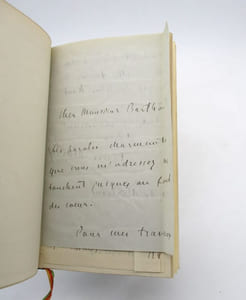 Cher Monsieur Barthou
Les paroles charmantes
que vous m'adressez me
touchent jusques au fond
du cœur.
Pour mes travaux